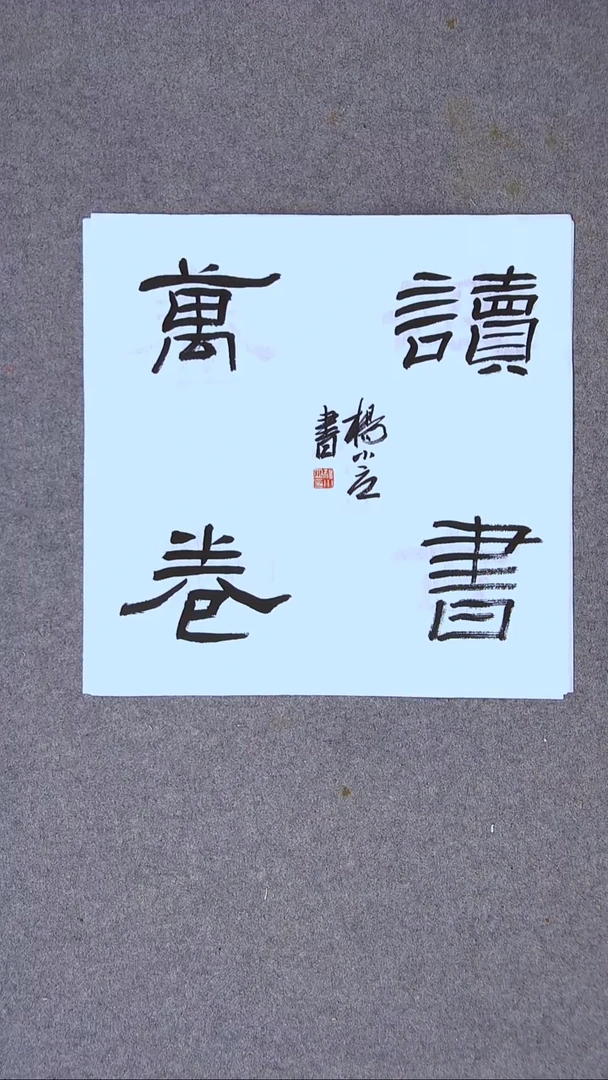 讀書
萬卷
楊小
書